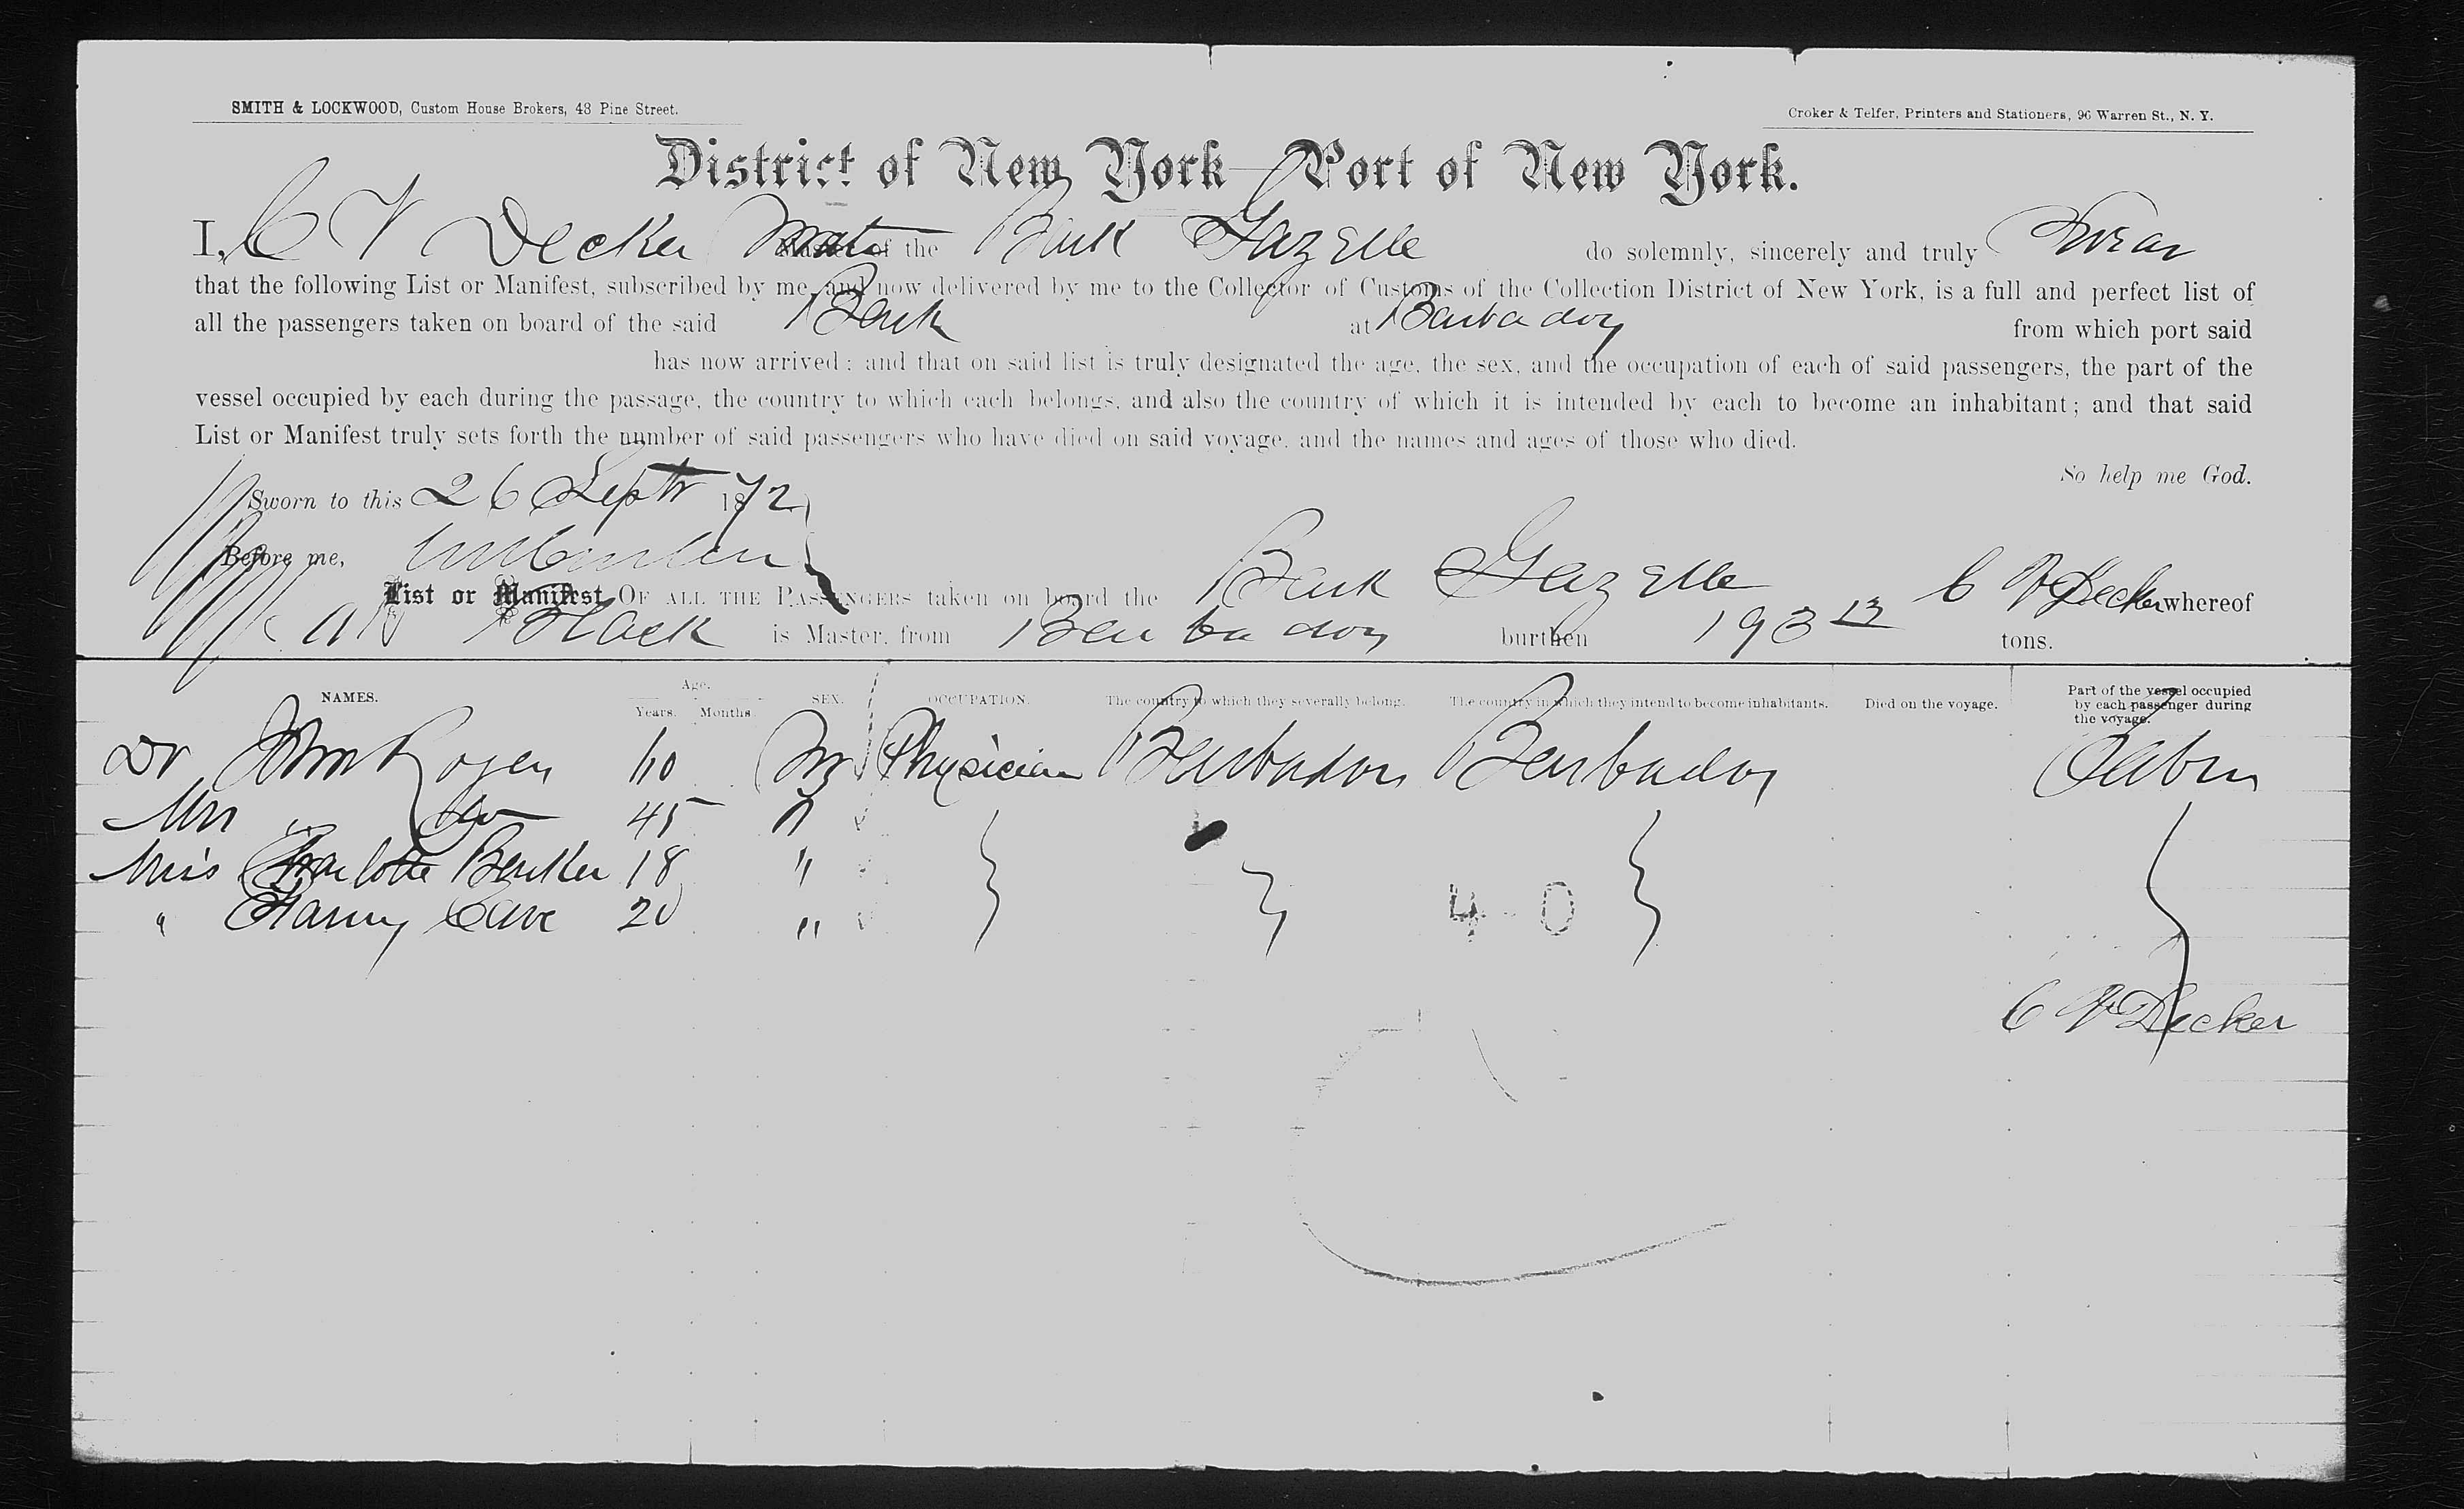 SMITH & LOCKWOOD, Custom House Brokers, 48 Pine Street.
Croker & Telfer, Printers and Stationers, 96 Warren St., N. Y.
District of New York—Port of New York.
I, C V Decker Mate Master of the Bark Gazelle do solemnly, sincerely and truly Swear
that the following List or Manifest, subscribed by me, and now delivered by me to the Collector of Customs of the Collection District of New York, is a full and perfect list of
all the passengers taken on board of the said Bark at Barbados from which port said
has now arrived: and that on said list is truly designated the age, the sex, and the occupation of each of said passengers, the part of the
vessel occupied by each during the passage, the country to which each belongs, and also the country of which it is intended by each to become an inhabitant; and that said
List or Manifest truly sets forth the number of said passengers who have died on said voyage, and the names and ages of those who died.
So help me God.
Sworn to this 26 Sept 1872
Before me,
List or Manifest OF ALL THE PASSENGERS taken on board the Bark Gazelle C V Decker whereof
is Master, from Barbados burthen 193 tons.
NAMES. Age. Years. Months. SEX. OCCUPATION. The country to which they severally belong. The country in which they intend to become inhabitants. Died on the voyage. Part of the vessel occupied by each passenger during the voyage.
Dr John 60 M Physician Barbados Barbados Cabin
Mrs " 45
Miss Charlotte Barker 18 "
" Fanny Cave 20 "
4 - 0
C V Decker